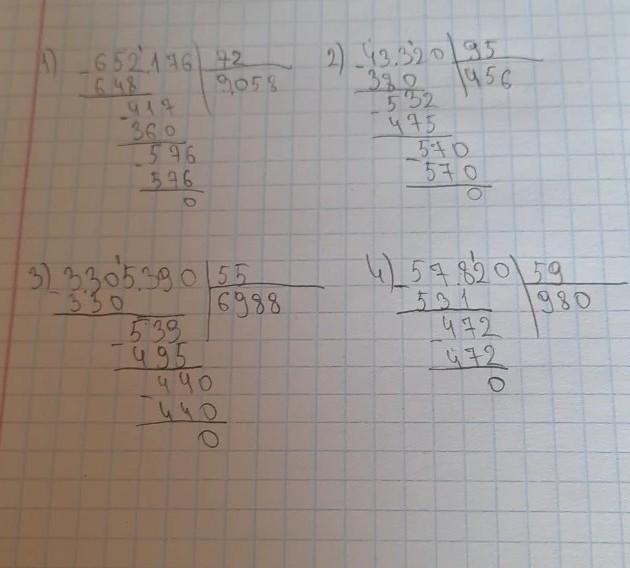 1) -652.176 72
648 9.058
-417
360
-576
576
0
2) -43.320 95
380 456
-532
475
-570
570
0
3) 3.305.390 55
-330 6988
-539
495
440
-440
0
4) -57.820 59
531 980
-472
472
0